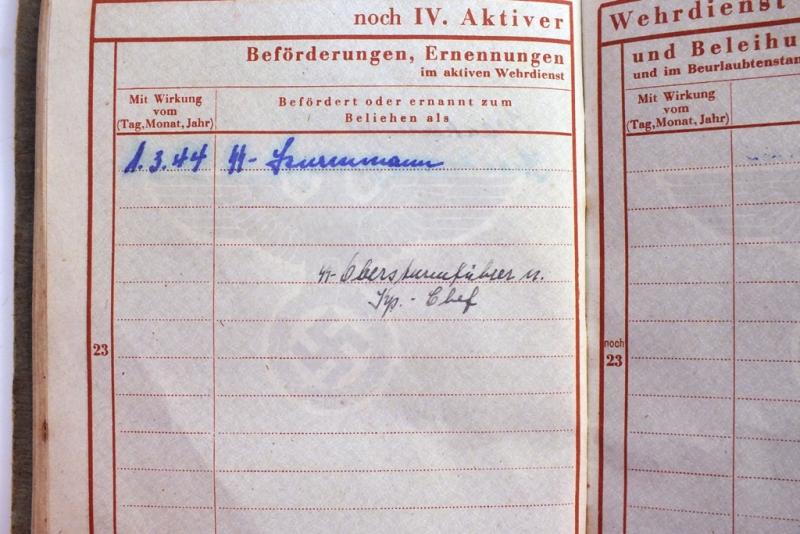 noch IV. Aktiver
Beförderungen, Ernennungen
im aktiven Wehrdienst
Mit Wirkung
vom
(Tag, Monat, Jahr)
Befördert oder ernannt zum
Beliehen als
1.3.44 SS-Sturmmann
SS-Obersturmführer u.
Kp.-Chef
23
Wehrdienst
und Beleihu
und im Beurlaubtenstan
Mit Wirkung
vom
(Tag, Monat, Jahr)
noch
23